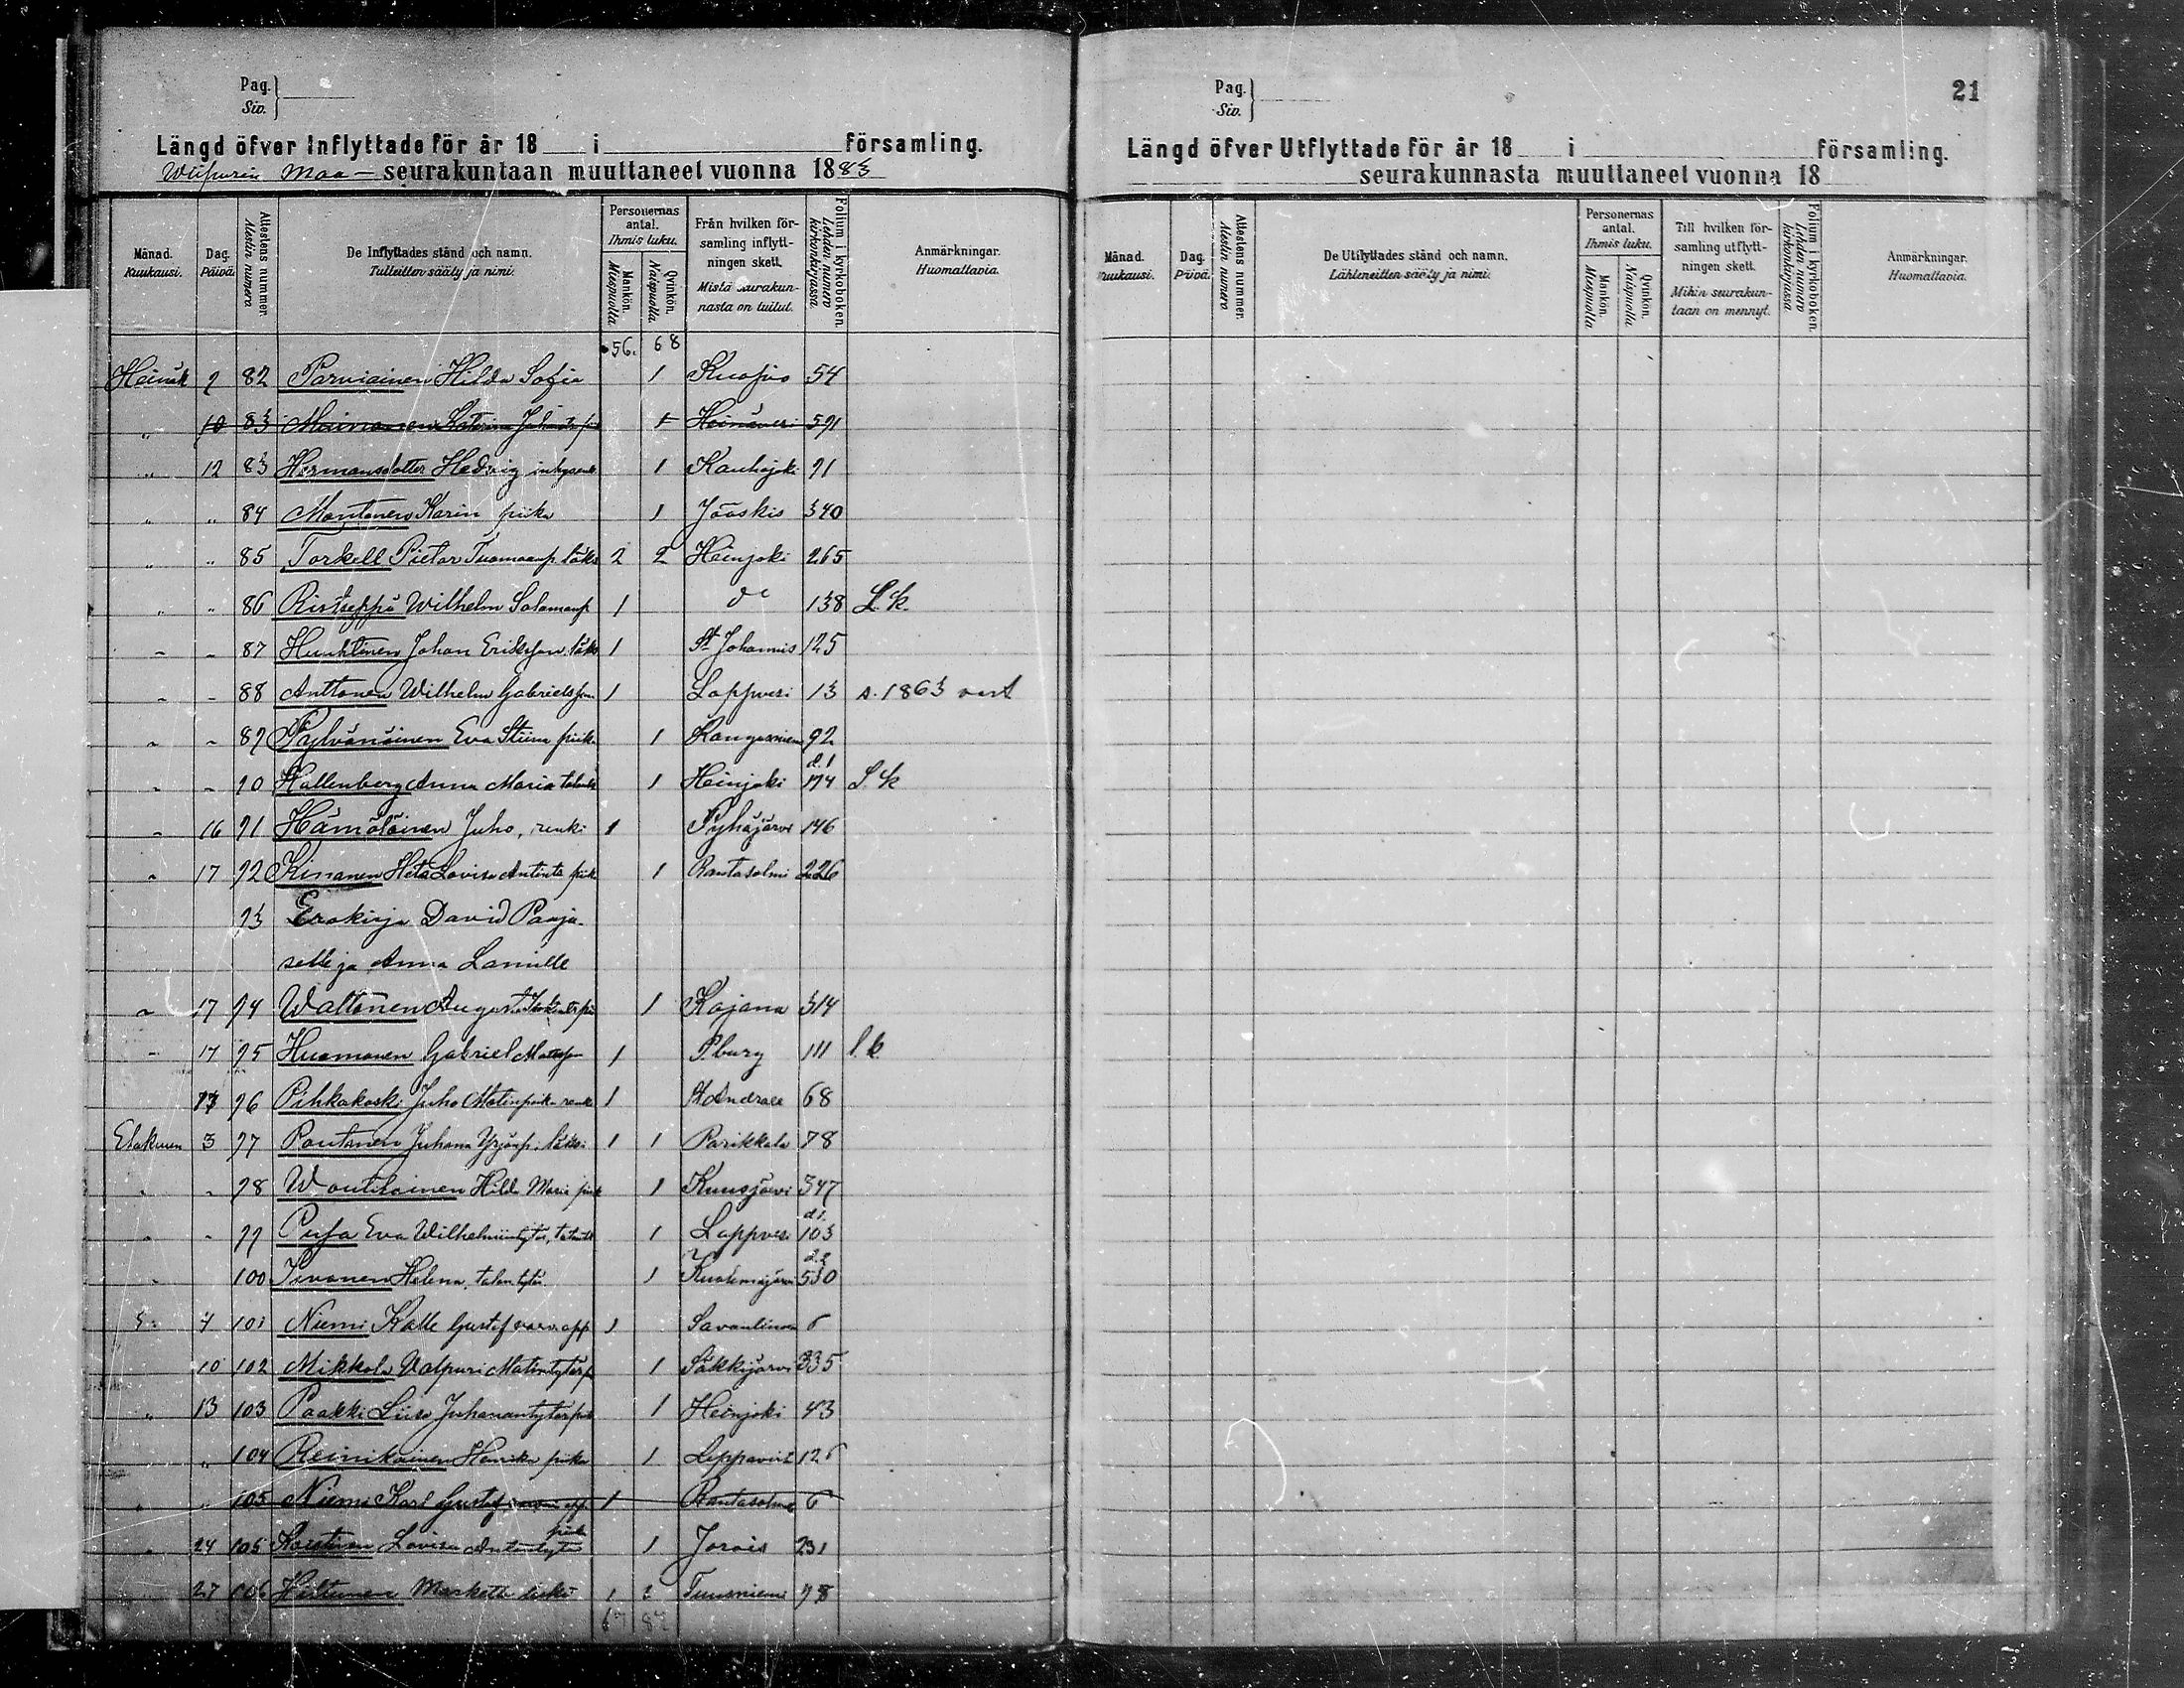 Pag.
Siv.
Längd öfver Inflyttade för år 18 i församling.
Wiipurin Maa - seurakuntaan muuttaneet vuonna 1883
Månad. Kuukausi. Dag. Päivä. Attestens nummer. Atestin numero De Inflyttades stånd och namn. Tulleitten sääty ja nimi. Personernas antal. Ihmis luku. Mankön. Miespuolia Qvinkön. Naispuolia Från hvilken församling inflyttningen skett. Mistä seurakunnasta on tullut. Folium i kyrkoboken. Lehden numero kirkonkirjassa. Anmärkningar. Huomattavia.
56. 68
Heinäk 9 82 Parviainen Hilda Sofia 1 Kuopio 54
" 10 83 1 Heinävesi 591
" 12 83 Hermansdotter Hedvig 1 Kauhajoki 91
" " 84 Montonen Karin piika 1 Jääskis 340
" " 85 Torkell Pietar Tuomaanp. läks 2 2 Heinjoki 265
" " 86 Ristseppä Wilhelm Salamonp 1 do 138 L.k.
" " 87 Huuhtinen Johan Eriksson läks 1 St Johannis 125
" " 88 Anttonen Wilhelm Gabrielsson 1 Lappvesi 13 s. 1863
" " 89 Pylvänäinen Eva Stiina piik. 1 Kangasniemi 92
" " 90 Hallenberg Anna Maria 1 Heinjoki d.1 174 L.k
" 16 91 Hämäläinen Juho, renki 1 Pyhäjärvi 146
" 17 92 Kinanen Heta Lovisa Antint. piik 1 Rantasalmi 226
93 Erokirja David Paaja-
selle ja Anna Lamille
" 17 94 Wattonen August 1 Kajana 314
" 17 95 Huomonen Gabriel 1 P.burg 111 l.k
96 Pihkakoski Juho Matinpoika renk 1 St Andreae 68
Elokuun 3 97 Pontinen Juhana Yrjönp. läksi 1 1 Parikkala 78
" " 98 Woutilainen Hilda Maria piik 1 Kuusjärvi 347
" " 99 Pusa Eva Wilhelmintytär, 1 Lappvesi d1. 103
" 100 Toivonen Helena, talon tytär 1 Kuolemajärvi d.2 530
7 101 Niemi Kalle Gustaf 1 Savonlinna 6
10 102 Mikkola Valpuri Matintytär p 1 Säkkijärvi 335
" 13 103 Paakki Liisa Juhanantytär piik 1 Heinjoki 43
" 104 Reinikainen Henrika piika 1 Leppävirt 126
" " 105 Niemi Karl Gustaf 1 Rantasalmi 6
" 24 105 Lovisa Antintytär piika 1 Jorois 231
27 106 Hiltunen Marketta leski 1 2 Tuusniemi 98
67 87
Pag.
Siv.
21
Längd öfver Utflyttade för år 18 i församling.
seurakunnasta muuttaneet vuonna 18
Månad. Kuukausi. Dag. Päivä. Attestens nummer. Atestin numero De Utflyttades stånd och namn. Lähteneitten sääty ja nimi. Personernas antal. Ihmis luku. Mankön. Miespuolia Qvinkön. Naispuolia Till hvilken församling utflyttningen skett. Mihin seurakuntaan on mennyt. Folium i kyrkoboken. Lehden numero kirkonkirjassa Anmärkningar. Huomattavia.